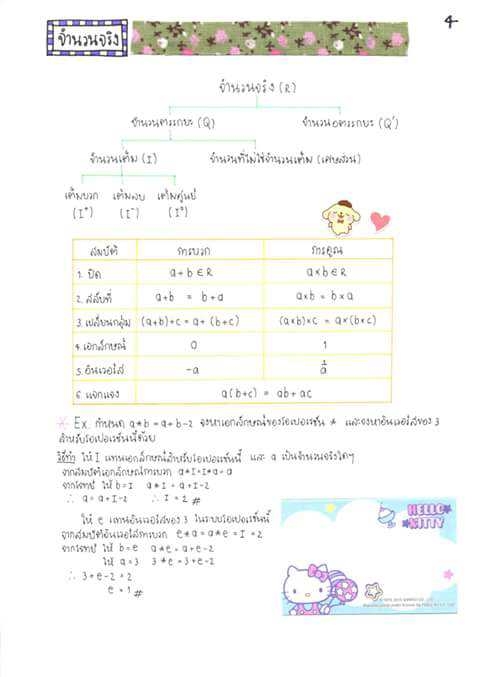 จำนวนจริง
4
จำนวนจริง (R)
จำนวนตรรกยะ (Q) จำนวนอตรรกยะ (Q')
จำนวนเต็ม (I) จำนวนที่ไม่ใช่จำนวนเต็ม (เศษส่วน)
เต็มบวก เต็มลบ เต็มศูนย์
(I⁺) (I⁻) (I⁰)
สมบัติ การบวก การคูณ
1. ปิด a+b ∈ R a×b ∈ R
2. สลับที่ a+b = b+a a×b = b×a
3. เปลี่ยนกลุ่ม (a+b)+c = a+(b+c) (a×b)×c = a×(b×c)
4. เอกลักษณ์ 0 1
5. อินเวอร์ส -a 1/a
6. แจกแจง a(b+c) = ab+ac
* Ex. กำหนด a*b = a+b-2 จงหาเอกลักษณ์ของโอเปอเรชั่น * และจงหาอินเวอร์สของ 3
สำหรับโอเปอเรชั่นนี้ด้วย
วิธีทำ ให้ I แทนเอกลักษณ์สำหรับโอเปอเรชั่นนี้ และ a เป็นจำนวนจริงใดๆ
จากสมบัติเอกลักษณ์การบวก a*I = I*a = a
จากโจทย์ ให้ b=I a*I = a+I-2
∴ a = a+I-2 ∴ I = 2 #
ให้ e แทนอินเวอร์สของ 3 ในระบบโอเปอเรชั่นนี้
จากสมบัติอินเวอร์สการบวก e*a = a*e = I = 2
จากโจทย์ ให้ b=e a*e = a+e-2
ให้ a=3 3*e = 3+e-2
∴ 3+e-2 = 2
e = 1 #
HELLO
KITTY